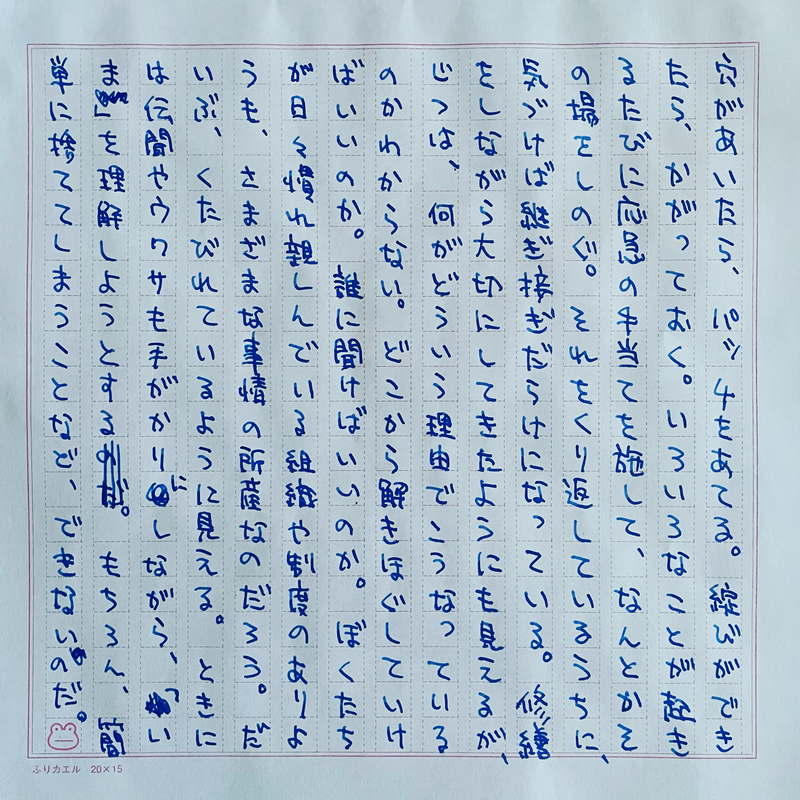 穴があいたら、パッチをあてる。綻びができ
たら、かがっておく。いろいろなことが起き
るたびに応急の手当てを施して、なんとかそ
の場をしのぐ。それをくり返しているうちに、
気づけば継ぎ接ぎだらけになっている。修繕
をしながら大切にしてきたようにも見えるが、
じつは、何がどういう理由でこうなっている
のかわからない。どこから解きほぐしていけ
ばいいのか。誰に聞けばいいのか。ぼくたち
が日々慣れ親しんでいる組織や制度のありよ
うも、さまざまな事情の所産なのだろう。だ
いぶ、くたびれているように見える。ときに
は伝聞やウワサも手がかりにしながら、「い
ま」を理解しようとする。もちろん、簡
単に捨ててしまうことなど、できないのだ。
ふりカエル 20×15